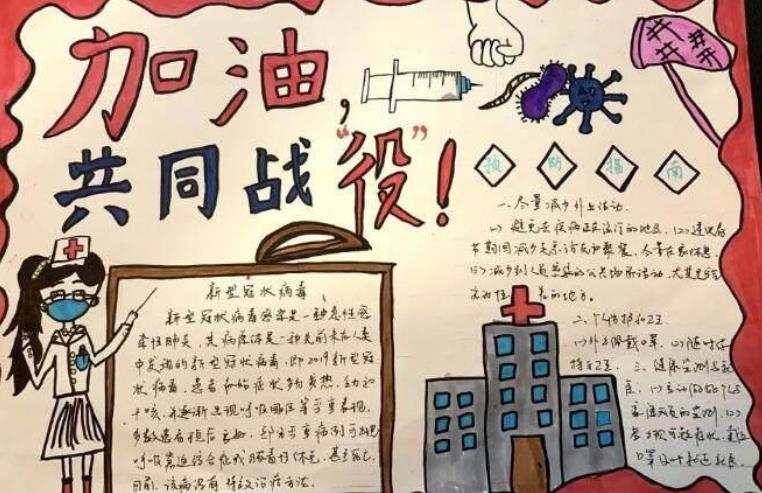 加油，
共同战“役”！
预防指南
一、尽量减少外出活动.
(1) 避免去疾病正在流行的地区. (2) 建议春
节期间减少走亲访友和聚餐，尽量在家休息.
(3) 减少到人员密集的公共场所活动，尤其是空
气 的地方。
二、个人防护和卫生
(1) 外出佩戴口罩. (2) 随时保
持手卫生. 三、健康监测与就
医. (1) 主动做好个人与
家庭成员的监测. (2)
若出现可疑症状，
口罩及时就近就医.
新型冠状病毒
新型冠状病毒感染是一种急性感
染性肺炎，其病原体是一种先前未在人类
中发现的新型冠状病毒，即2019新型冠
状病毒，患者初始症状多为发热、乏力和
干咳，并逐渐出现呼吸困难等严重表现.
多数患者预后良好，部分严重病例可出现
呼吸窘迫综合征或脓毒症休克，甚至死亡.
目前，该病没有特效治疗方法.